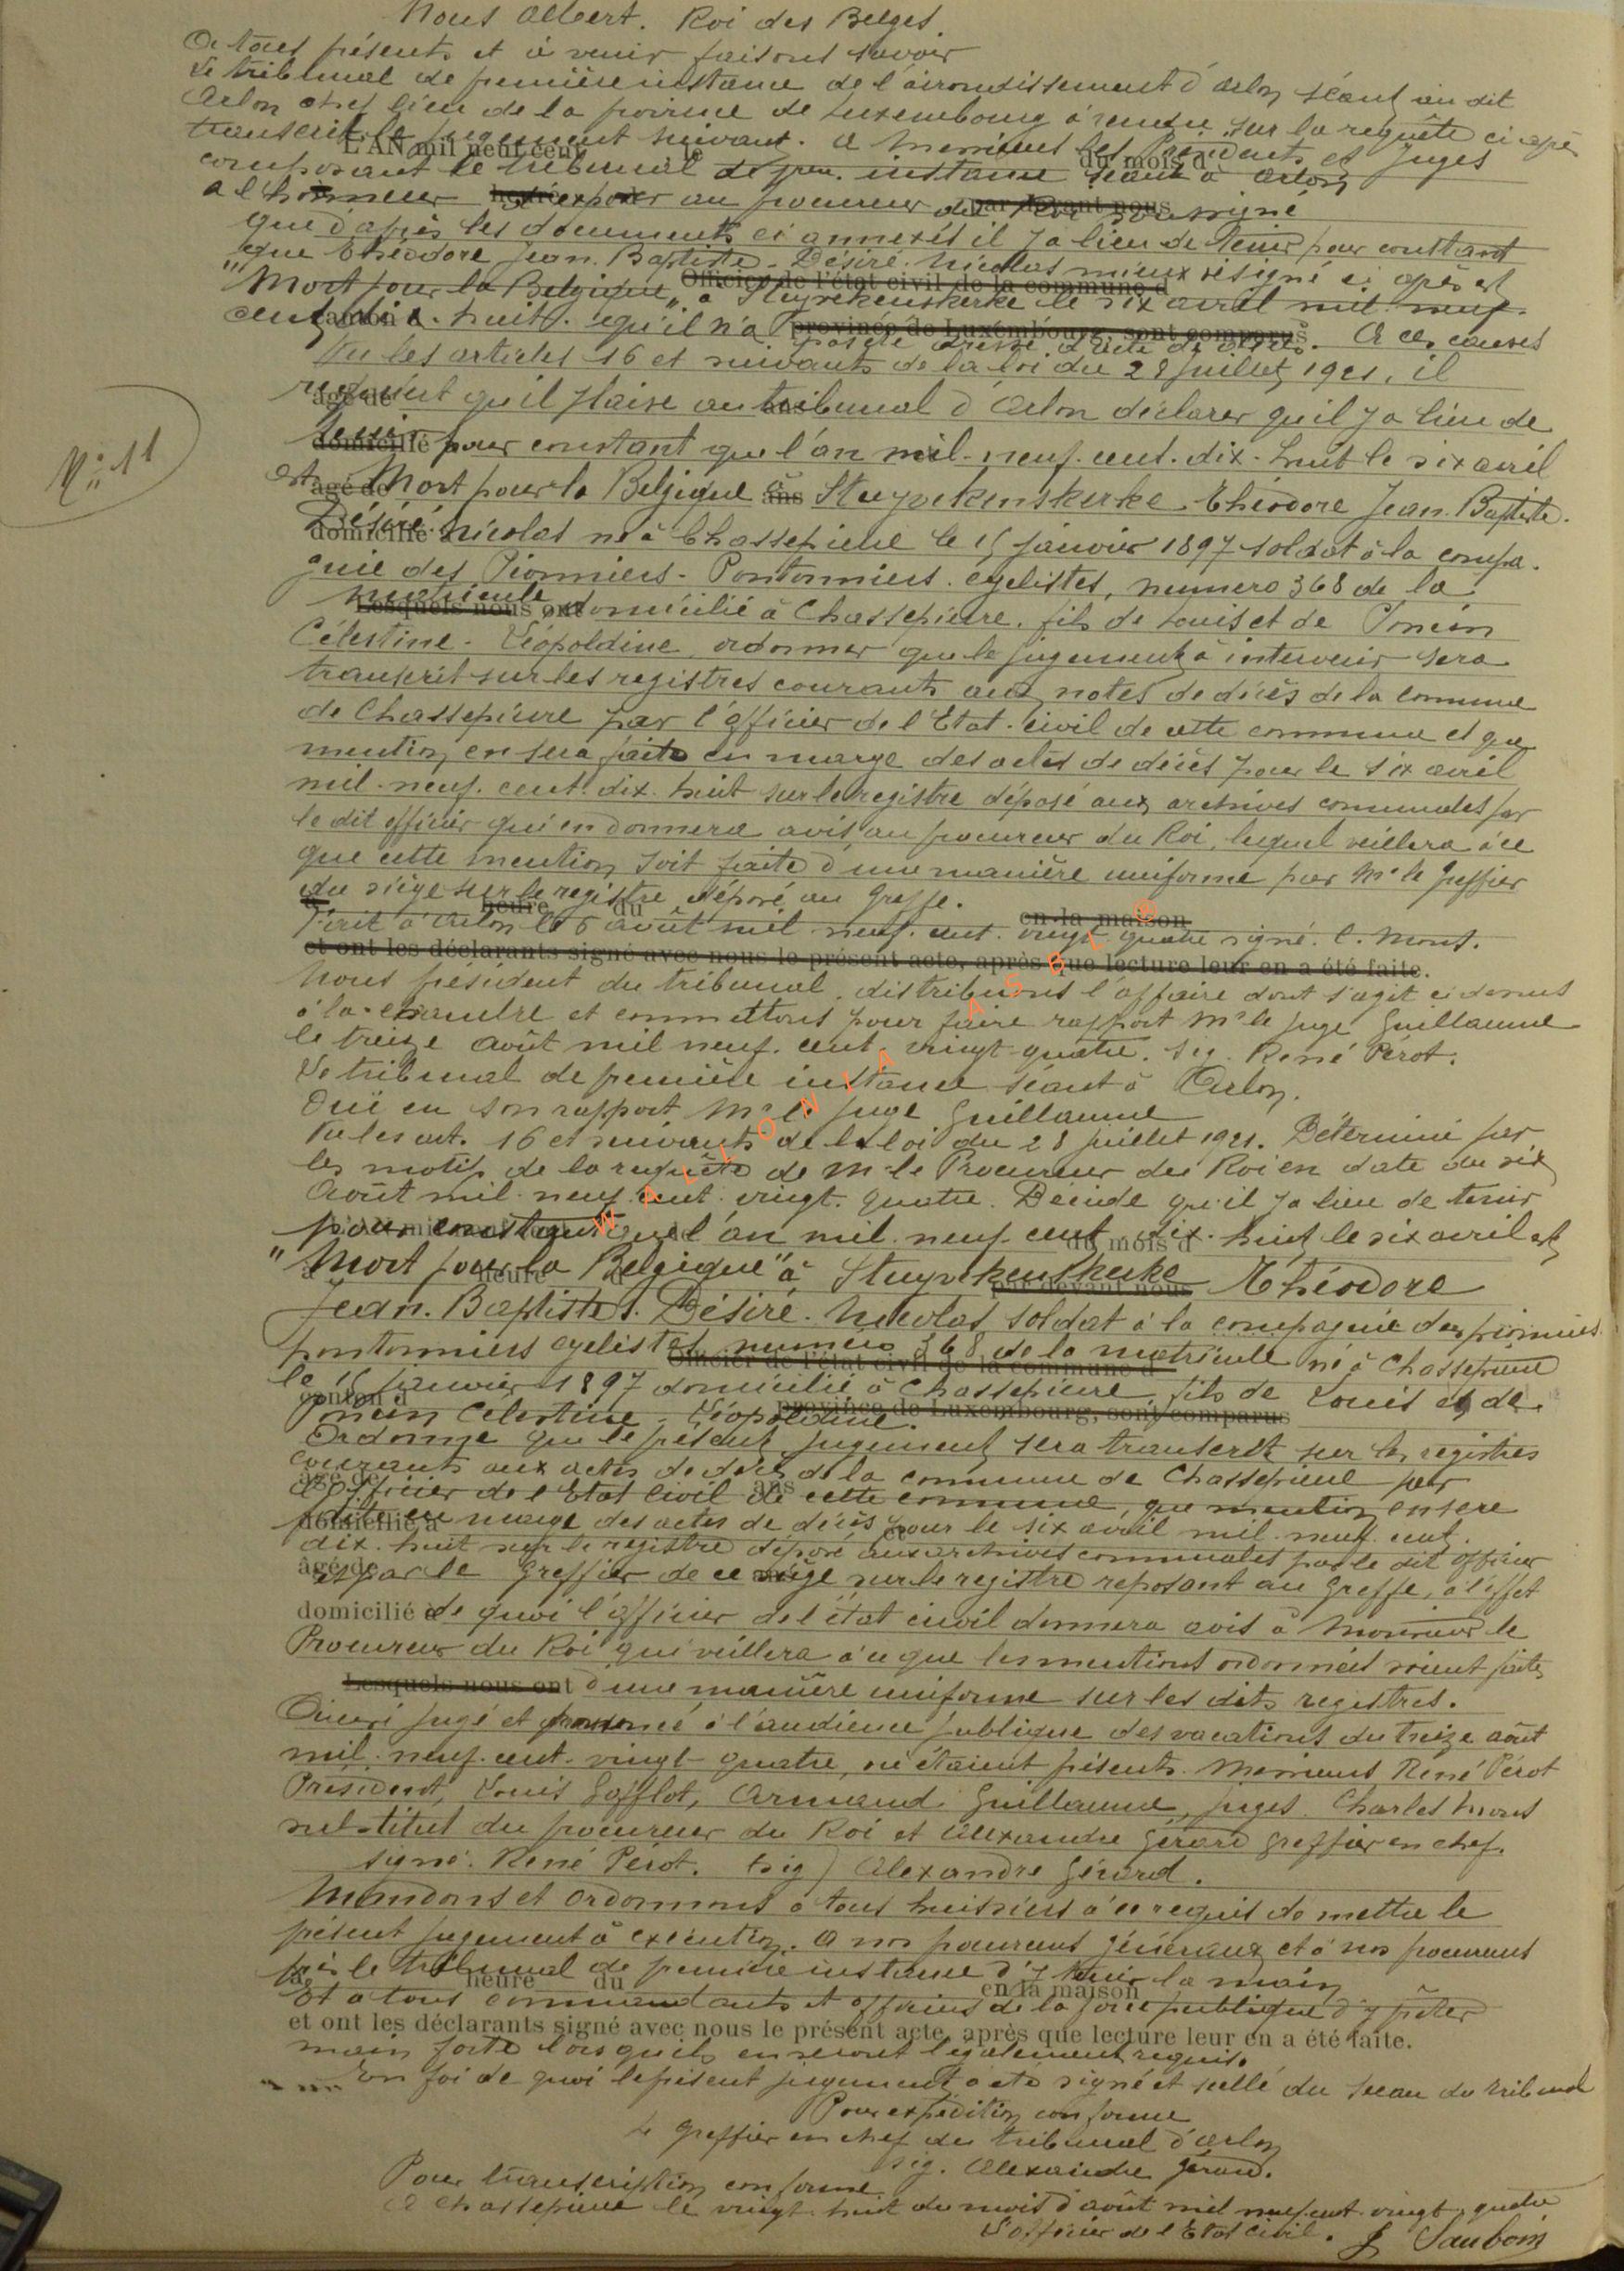 Nous Albert. Roi des Belges.
A tous présents et à venir faisons savoir
Le tribunal de première instance de l'arrondissement d'Arlon séant au dit
Arlon chef lieu de la province de Luxembourg à rendu sur la requête ci après
transcrit le jugement suivant. A Messieurs les Présidents et Juges
L'AN mil neuf cent le du mois d
composant le tribunal de prem. instance séant à Arlon
A l'honneur d'exposer au procureur du Roi soussigné
par devant nous
que d'après les documents ci annexés il y a lieu de tenir pour constant
que Théodore Jean. Baptiste. Désiré. Nicolas mieux désigné ci après est
Officier de l'état civil de la commune d
"Mort pour la Belgique" à Stuyvekenskerke le six avril mil. neuf.
cent dix. huit. qu'il n'a pas été dressé d'acte de décès. A ces causes
canton d province de Luxembourg, sont comparus
Vu les articles 16 et suivants de la loi du 28 juillet 1921, il
requiert qu'il plaise au tribunal d'Arlon déclarer qu'il y a lieu de
âgé de ans
tenir pour constant que l'an mil. neuf. cent. dix. huit le six avril
domicilié
est Mort pour la Belgique à Stuyvekenskerke Théodore Jean. Baptiste.
âgé de ans
Désiré. Nicolas né à Chassepierre le 15 janvier 1897 soldat à la compa.
domicilié
gnie des Pionniers - Pontonniers. cyclistes, numero 368 de la
matricule, domicilié à Chassepierre. fils de Louis et de Poncin
Lesquels nous ont
Célestine - Léopoldine, ordonner que le jugement à intervenir sera
transcrit sur les registres courants aux notes de décès de la commune
de Chassepierre par l'officier de l'Etat. civil de cette commune et que
mention en sera faite en marge des actes de décès pour le six avril
mil. neuf. cent. dix. huit sur le registre déposé aux archives communales par
le dit officier qui en donnera avis au procureur du Roi, lequel veillera à ce
que cette mention soit faite d'une manière uniforme par Mr le Greffier
du siège sur le registre déposé au Greffe.
heure du en la maison
Fait à Arlon le 6 août mil. neuf. cent. vingt quatre signé. C. Mons.
et ont les déclarants signé avec nous le présent acte, après que lecture leur en a été faite.
Nous président du tribunal, distribuons l'affaire dont s'agit ci dessus
à la chambre et commettons pour faire rapport Mr le Juge Guillaume
le treize août mil neuf. cent. vingt quatre. Sig. René Pérot.
Le tribunal de première instance séant à Arlon.
Ouï en son rapport Mr le Juge Guillaume
Vu les art. 16 et suivants de la loi du 28 juillet 1921. Déterminé par
les motifs de la requête de Mr le Procureur du Roi en date du six
Août mil. neuf. cent. vingt. quatre. Décide qu'il y a lieu de tenir
pour constant que l'an mil. neuf. cent. dix. huit le six avril est
du mois d
"Mort pour la Belgique" à Stuyvekenskerke Théodore
à heure par devant nous
Jean. Baptiste. Désiré. Nicolas soldat à la compagnie des pionniers.
pontonniers cyclistes numéro 368 de la matricule né à Chassepierre
Officier de l'état civil de la commune d
le 15 janvier 1897 domicilié à Chassepierre fils de Louis et de
canton d province de Luxembourg, sont comparus
Poncin Célestine - Léopoldine.
Ordonne que le présent jugement sera transcrit sur les registres
courants aux actes de décès de la commune de Chassepierre par
âgé de ans
l'officier de l'Etat Civil de cette commune, que mention en sera
faite en marge des actes de décès pour le six avril mil. neuf. cent.
domicilié à et
dix. huit sur le registre déposé aux archives communales par le dit officier
âgé de
et par le Greffier de ce siège sur le registre reposant au Greffe, à l'effet
domicilié à
de quoi l'officier de l'état civil donnera avis à Monsieur le
Procureur du Roi qui veillera à ce que les mentions ordonnées soient faites
Lesquels nous ont
d'une manière uniforme sur les dits registres.
Ainsi jugé et prononcé à l'audience publique des vacations du treize août
mil. neuf. cent. vingt quatre, où étaient présents. Messieurs René Pérot
Président, Louis Gofflot, Armand Guillaume, juges. Charles Mons
substitut du procureur du Roi et Alexandre Gérard greffier en chef.
signé. René Pérot. (sig) Alexandre Gérard.
Mandons et ordonnons à tous huissiers à ce requis de mettre le
présent jugement à exécution. A nos procureurs généraux et à nos procureurs
près le tribunal de première instance d'y tenir la main
à heure du en la maison
Et à tous commandants et officiers de la force publique d'y prêter
et ont les déclarants signé avec nous le présent acte, après que lecture leur en a été faite.
main forte lorsqu'ils en seront légalement requis.
En foi de quoi le présent jugement a été signé et scellé du sceau du tribunal
Pour expédition conforme
Le greffier en chef du tribunal d'Arlon
sig. Alexandre Gérard.
Pour transcription conforme
A Chassepierre le vingt. huit du mois d'août mil neuf cent vingt quatre
L'officier de l'Etat Civil.
Sauboin
N° 11
WALLONIA ASBL ©